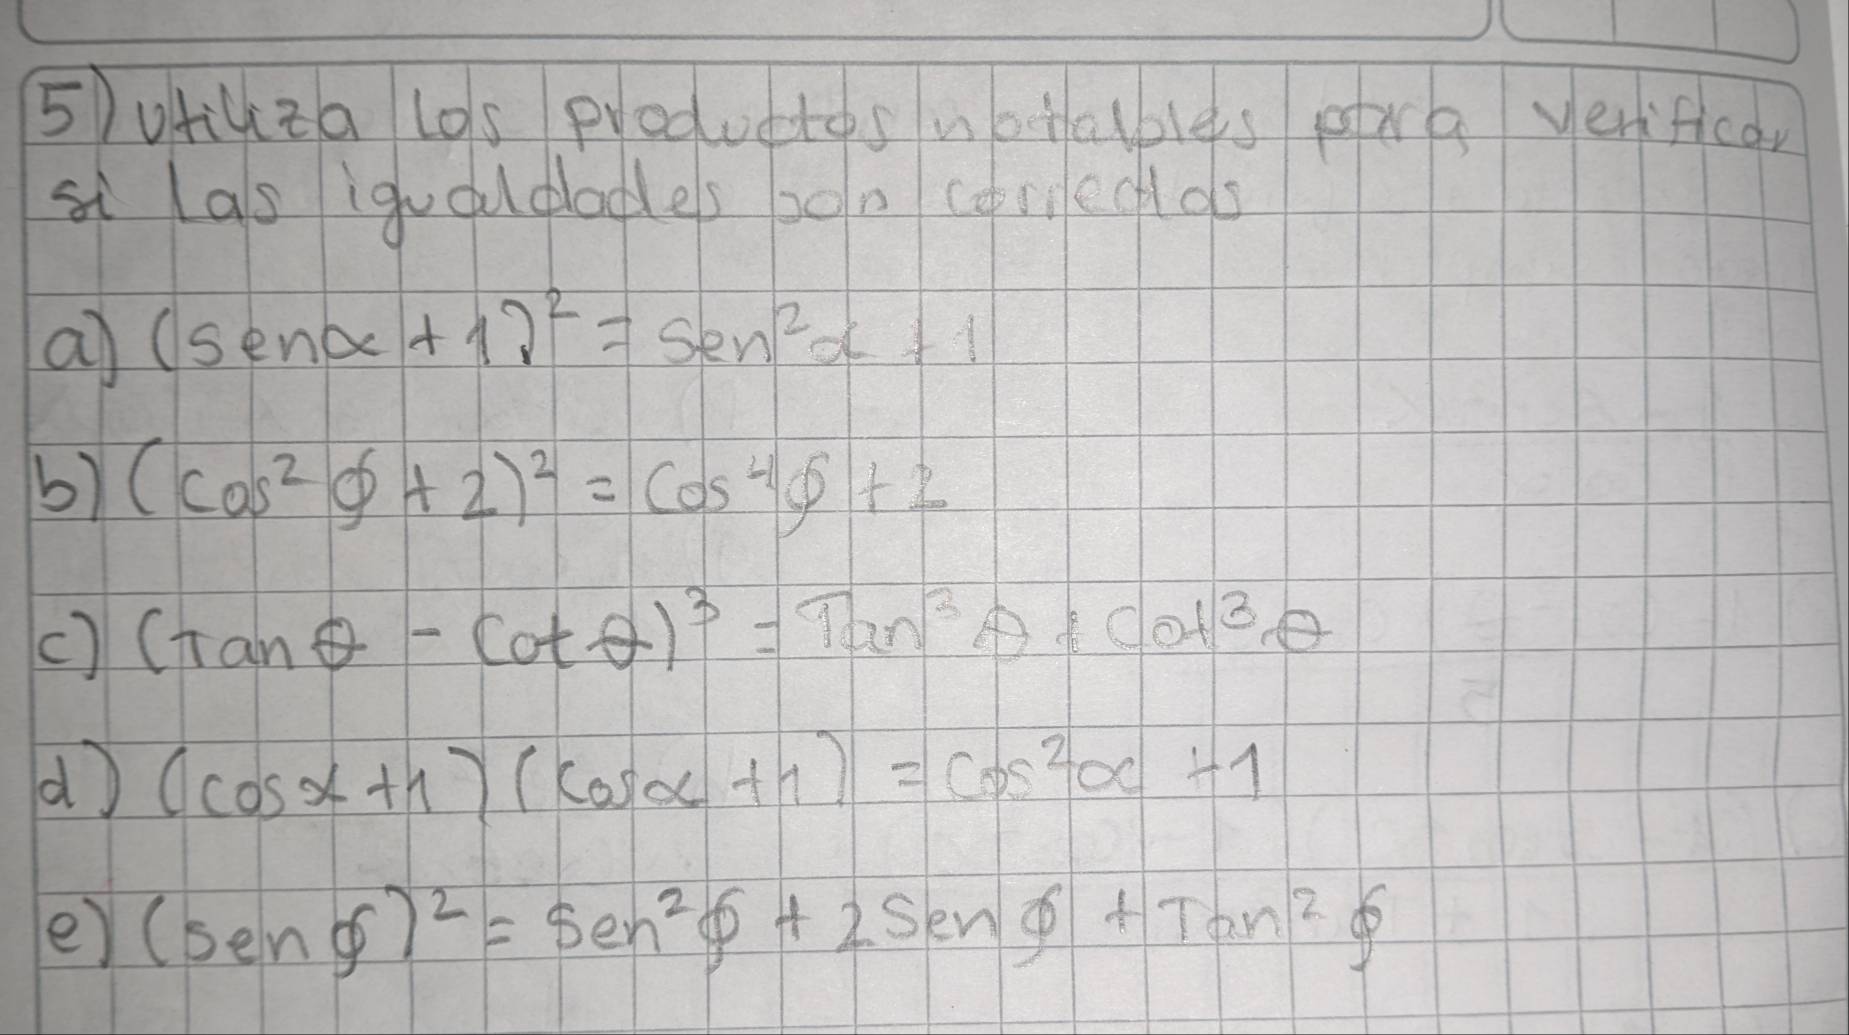 5) Utiliza los productos notables para verificar
si las igualdades son correctas
a) (senα + 1)² = sen²α + 1
b) (cos²ϕ + 2)² = Cos⁴ϕ + 2
c) (Tanθ - Cotθ)³ = Tan³θ + Cot³θ
d) (cosα + 1) (cosα + 1) = cos²α + 1
e) (senϕ)² = Sen²ϕ + 2 Senϕ + Tan²ϕ